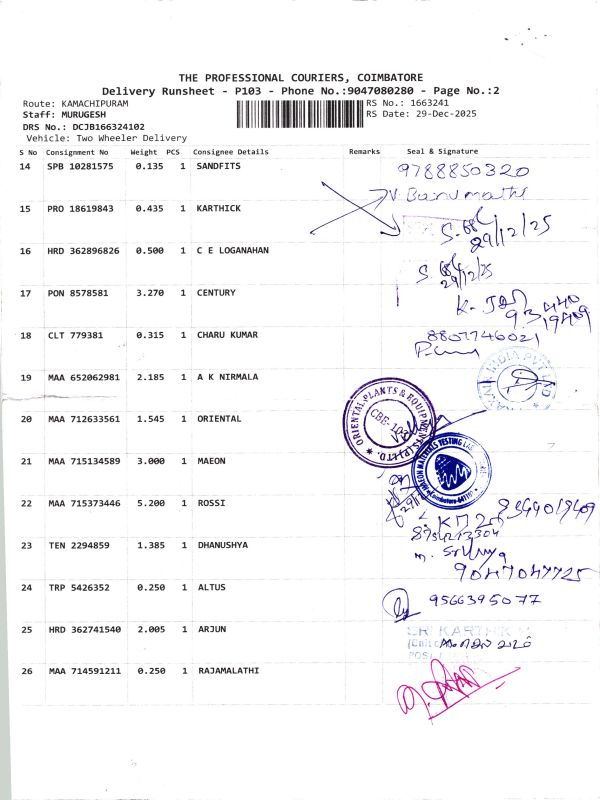 THE PROFESSIONAL COURIERS, COIMBATORE
Delivery Runsheet - P103 - Phone No.:9047080280 - Page No.:2
Route: KAMACHIPURAM RS No.: 1663241
Staff: MURUGESH RS Date: 29-Dec-2025
DRS No.: DCJB166324102
Vehicle: Two Wheeler Delivery
S No Consignment No Weight PCS Consignee Details Remarks Seal & Signature
14 SPB 10281575 0.135 1 SANDFITS 9788850320
15 PRO 18619843 0.435 1 KARTHICK
29/12/25
16 HRD 362896826 0.500 1 C E LOGANAHAN
29/12/25
17 PON 8578581 3.270 1 CENTURY
18 CLT 779381 0.315 1 CHARU KUMAR 8807746021
19 MAA 652062981 2.185 1 A K NIRMALA
INDIA PVT LTD
20 MAA 712633561 1.545 1 ORIENTAL
ORIENTAL PLANTS & EQUIPMENTS (P) LTD.
21 MAA 715134589 3.000 1 MAEON
MAEON MATERIALS TESTING LAB
22 MAA 715373446 5.200 1 ROSSI
23 TEN 2294859 1.385 1 DHANUSHYA
9047047725
24 TRP 5426352 0.250 1 ALTUS 9566395077
25 HRD 362741540 2.005 1 ARJUN
SRI KARTHIK
26 MAA 714591211 0.250 1 RAJAMALATHI